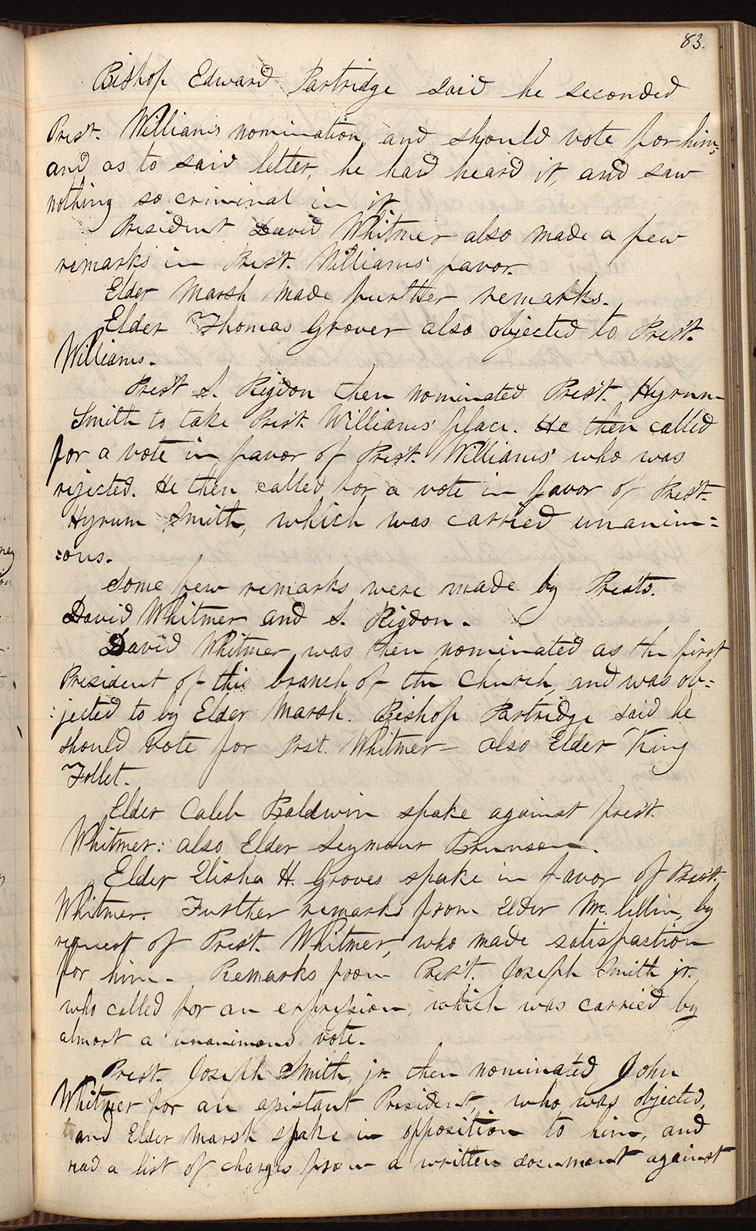 83.
Bishop Edward Partridge said he seconded
Prest. Williams nomination, and should vote for him;
and as to said letter, he had heard it, and saw
nothing so criminal in it.
President David Whitmer also made a few
remarks in Prest. Williams' favor.
Elder Marsh made further remarks.
Elder Thomas Grover also objected to Prest.
Williams.
Prest S. Rigdon then nominated Prest. Hyrum
Smith to take Prest. Williams' place. He then called
for a vote in favor of Prest. Williams' who was
rejected. He then called for a vote in favor of Prest.
Hyrum Smith, which was carried unanim=
=ous.
Some few remarks were made by Prests.
David Whitmer and S. Rigdon.
David Whitmer was then nominated as the first
President of this branch of the Church, and was ob=
=jected to by Elder Marsh. Bishop Partridge said he
should vote for Prst. Whitmer also Elder King
Follet.
Elder Caleb Baldwin spake against prest.
Whitmer: also Elder Seymour Brunson.
Elder Elisha H. Groves spake in favor of Prest.
Whitmer. Further remarks from Elder Mc.lellin, by
request of Prest. Whitmer, who made satisfaction
for him. Remarks from Prest. Joseph Smith jr.
who called for an expression, which was carried by
almost a unanimous vote.
Prest. Joseph Smith, jr. then nominated John
Whitmer for an assistant President, who was objected,
and Elder Marsh spake in opposition to him, and
read a list of charges from a written document against